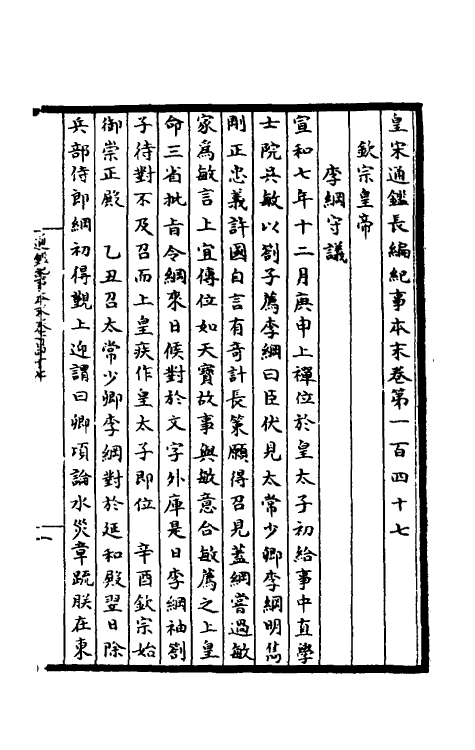 皇宋通鑑長編紀事本末卷第一百四十七
欽宗皇帝
李綱守議
宣和七年十二月庚申上禪位於皇太子初給事中直學
士院吳敏以劄子薦李綱曰臣伏見太常少卿李綱明雋
剛正忠義許國自言有奇計長策願得召見蓋綱嘗過敏
家為敏言上宜傳位如天寶故事與敏意合敏薦之上皇
命三省批旨令綱來日候對於文字外庫是日李綱袖劄
子待對不及召而上皇疾作皇太子即位　辛酉欽宗始
御崇正殿　乙丑召太常少卿李綱對於延和殿翌日除
兵部侍郎綱初得覲上迎謂曰卿頃論水災章疏朕在東